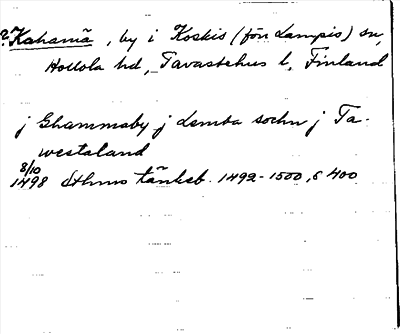 ?Kahamä, by i Koskis (förr Lampis) sn,
Hollola hd, Tavastehus l, Finland
j Ghammaby j Lemba sochn j Ta-
westaland
8/10
1498 Sthms tänkeb. 1492-1500, s 400